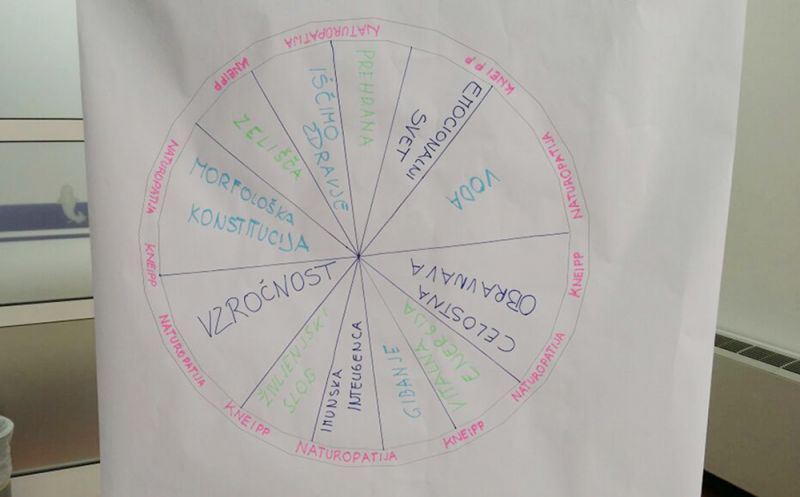 NATUROPATIJA
KNEIPP
NATUROPATIJA
KNEIPP
NATUROPATIJA
KNEIPP
NATUROPATIJA
KNEIPP
NATUROPATIJA
KNEIPP
NATUROPATIJA
KNEIPP
PREHRANA
EMOCIONALNI
SVET
VODA
CELOSTNA
OBRAVNAVA
VITALNA
ENERGIJA
GIBANJE
IMUNSKA
INTELIGENCA
ŽIVLJENJSKI
SLOG
VZROČNOST
MORFOLOŠKA
KONSTITUCIJA
ZELIŠČA
IŠČIMO
ZDRAVJE